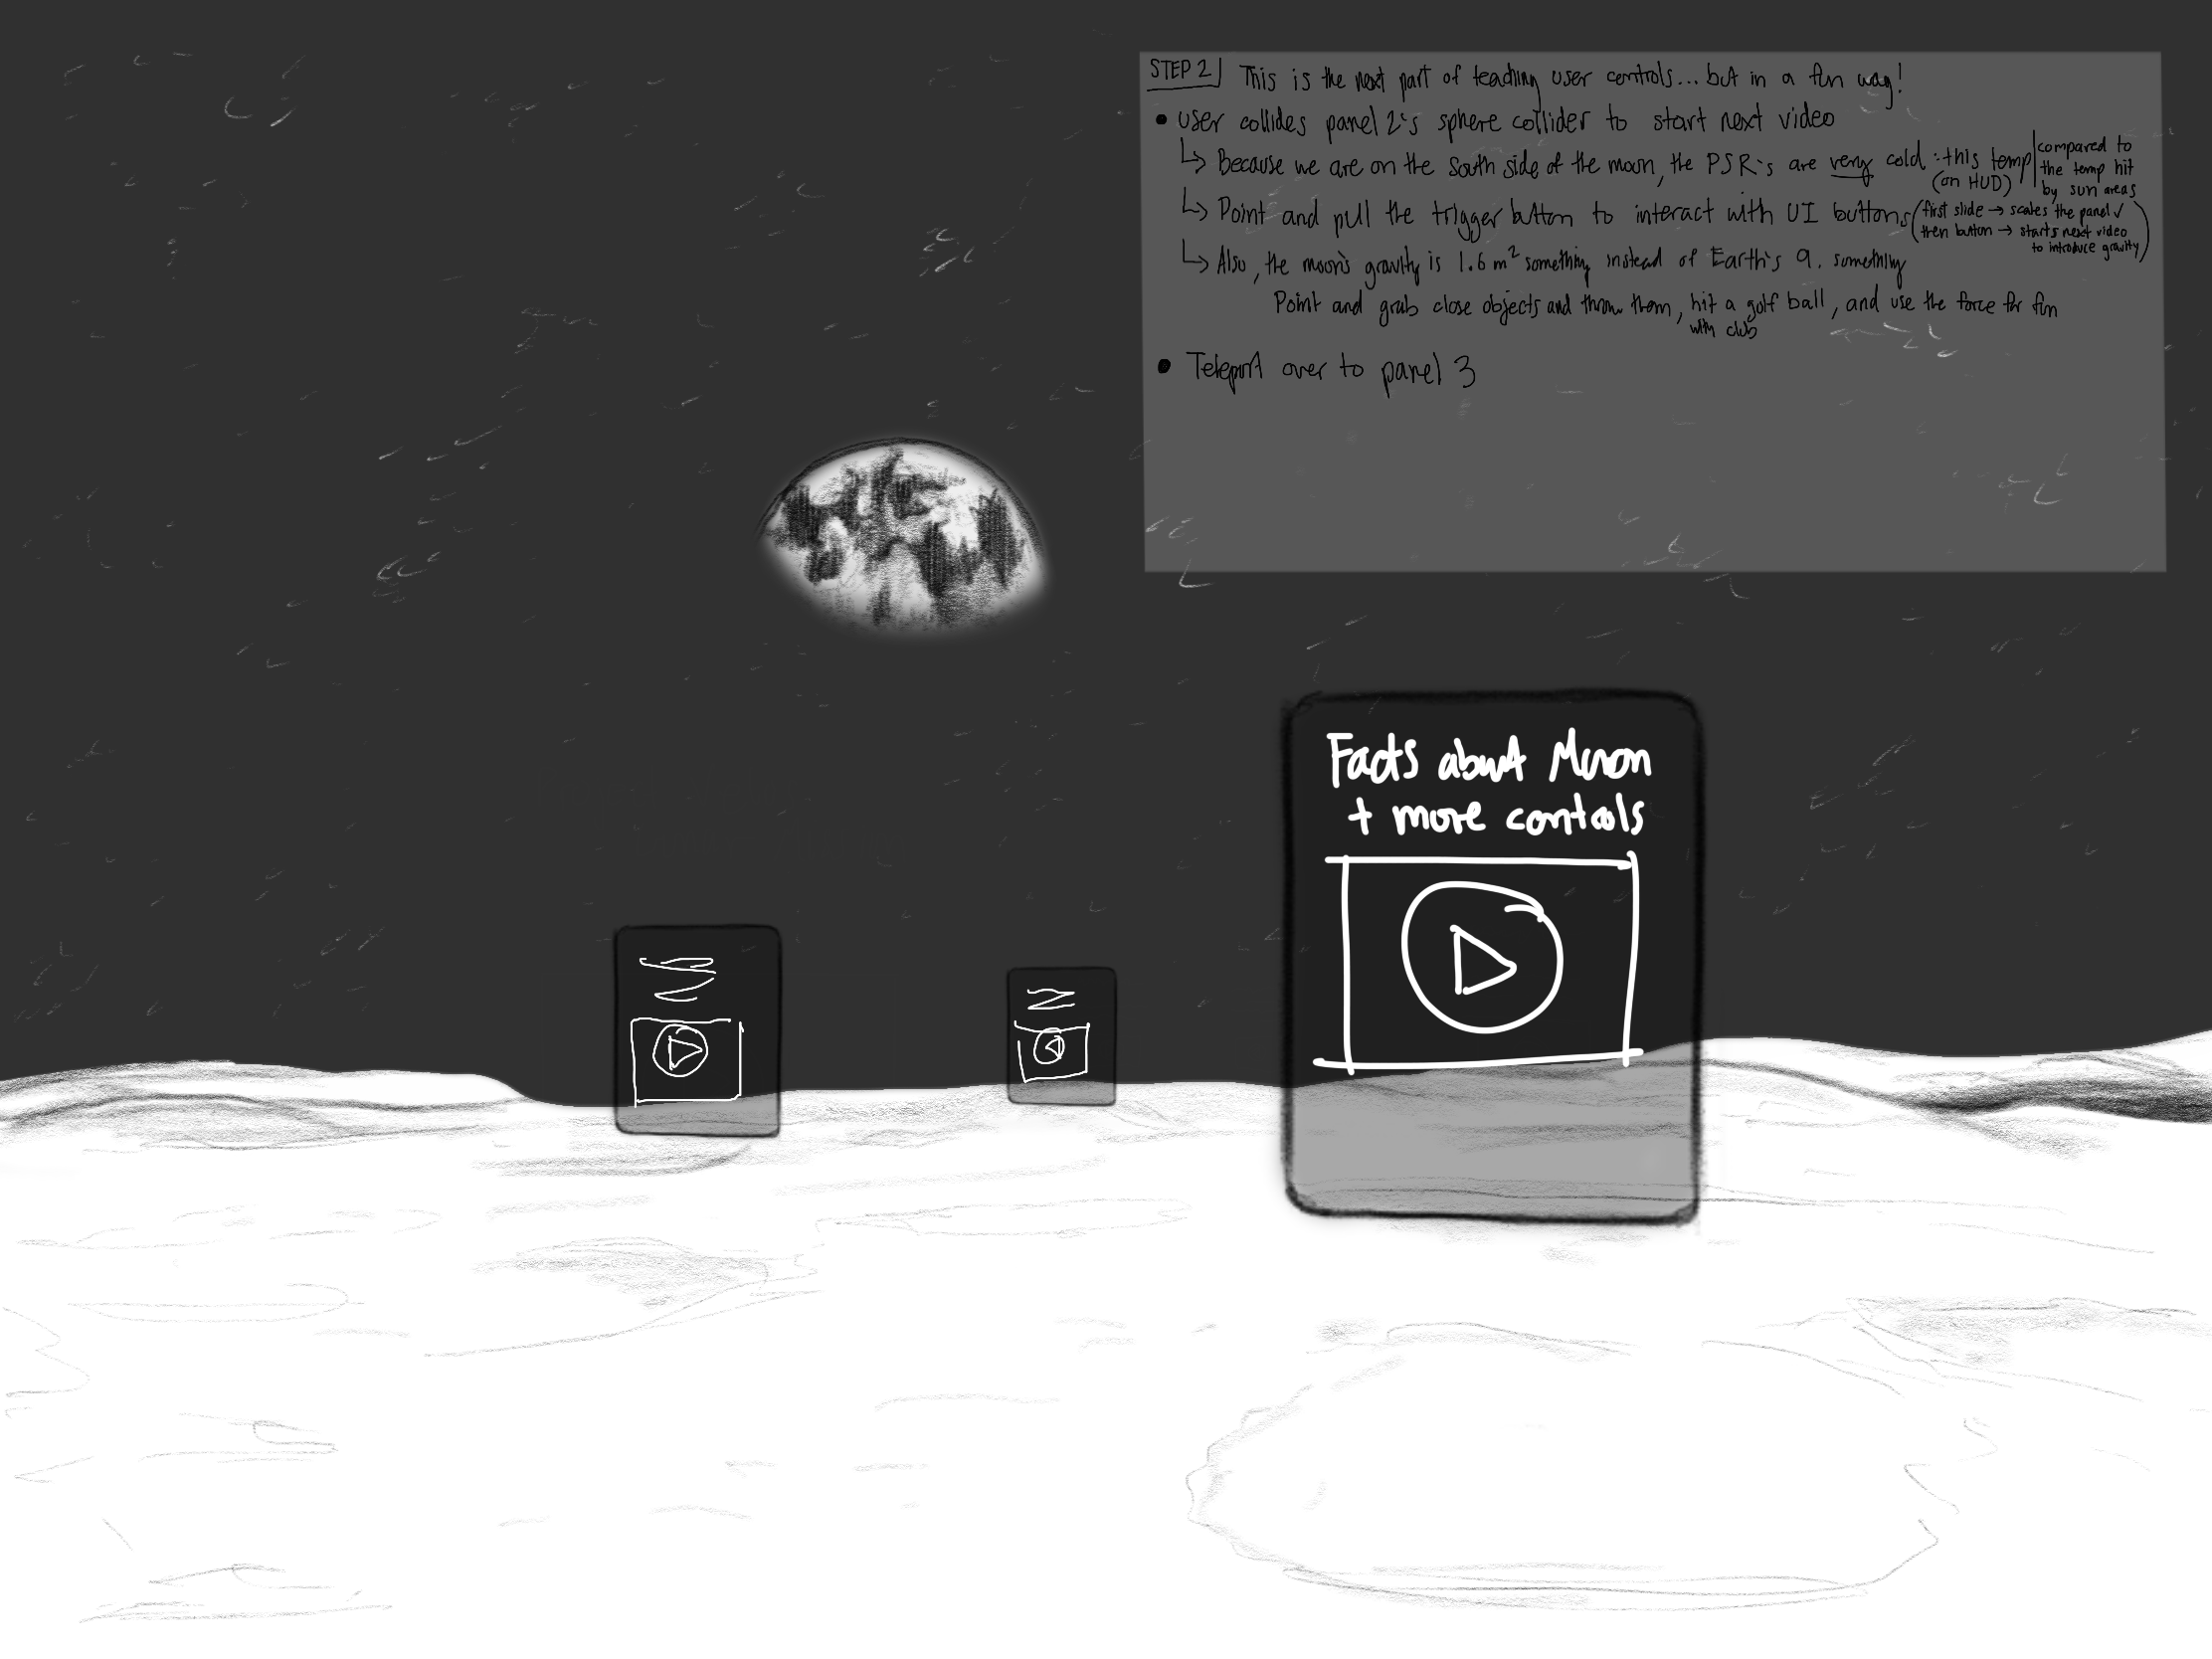 STEP 2 This is the next part of teaching user controls... but in a fun way!
• User collides panel 2's sphere collider to start next video
↳ Because we are on the South side of the moon, the PSR's are very cold : this temp (on HUD) | compared to the temp hit by sun areas
↳ Point and pull the trigger button to interact with UI buttons (first slide → scales the panel ✓ then button → starts next video to introduce gravity)
↳ Also, the moon's gravity is 1.6 m² something instead of Earth's 9. something
Point and grab close objects and throw them, hit a golf ball with club, and use the force for fun
• Teleport over to panel 3
Facts about Moon
+ more controls